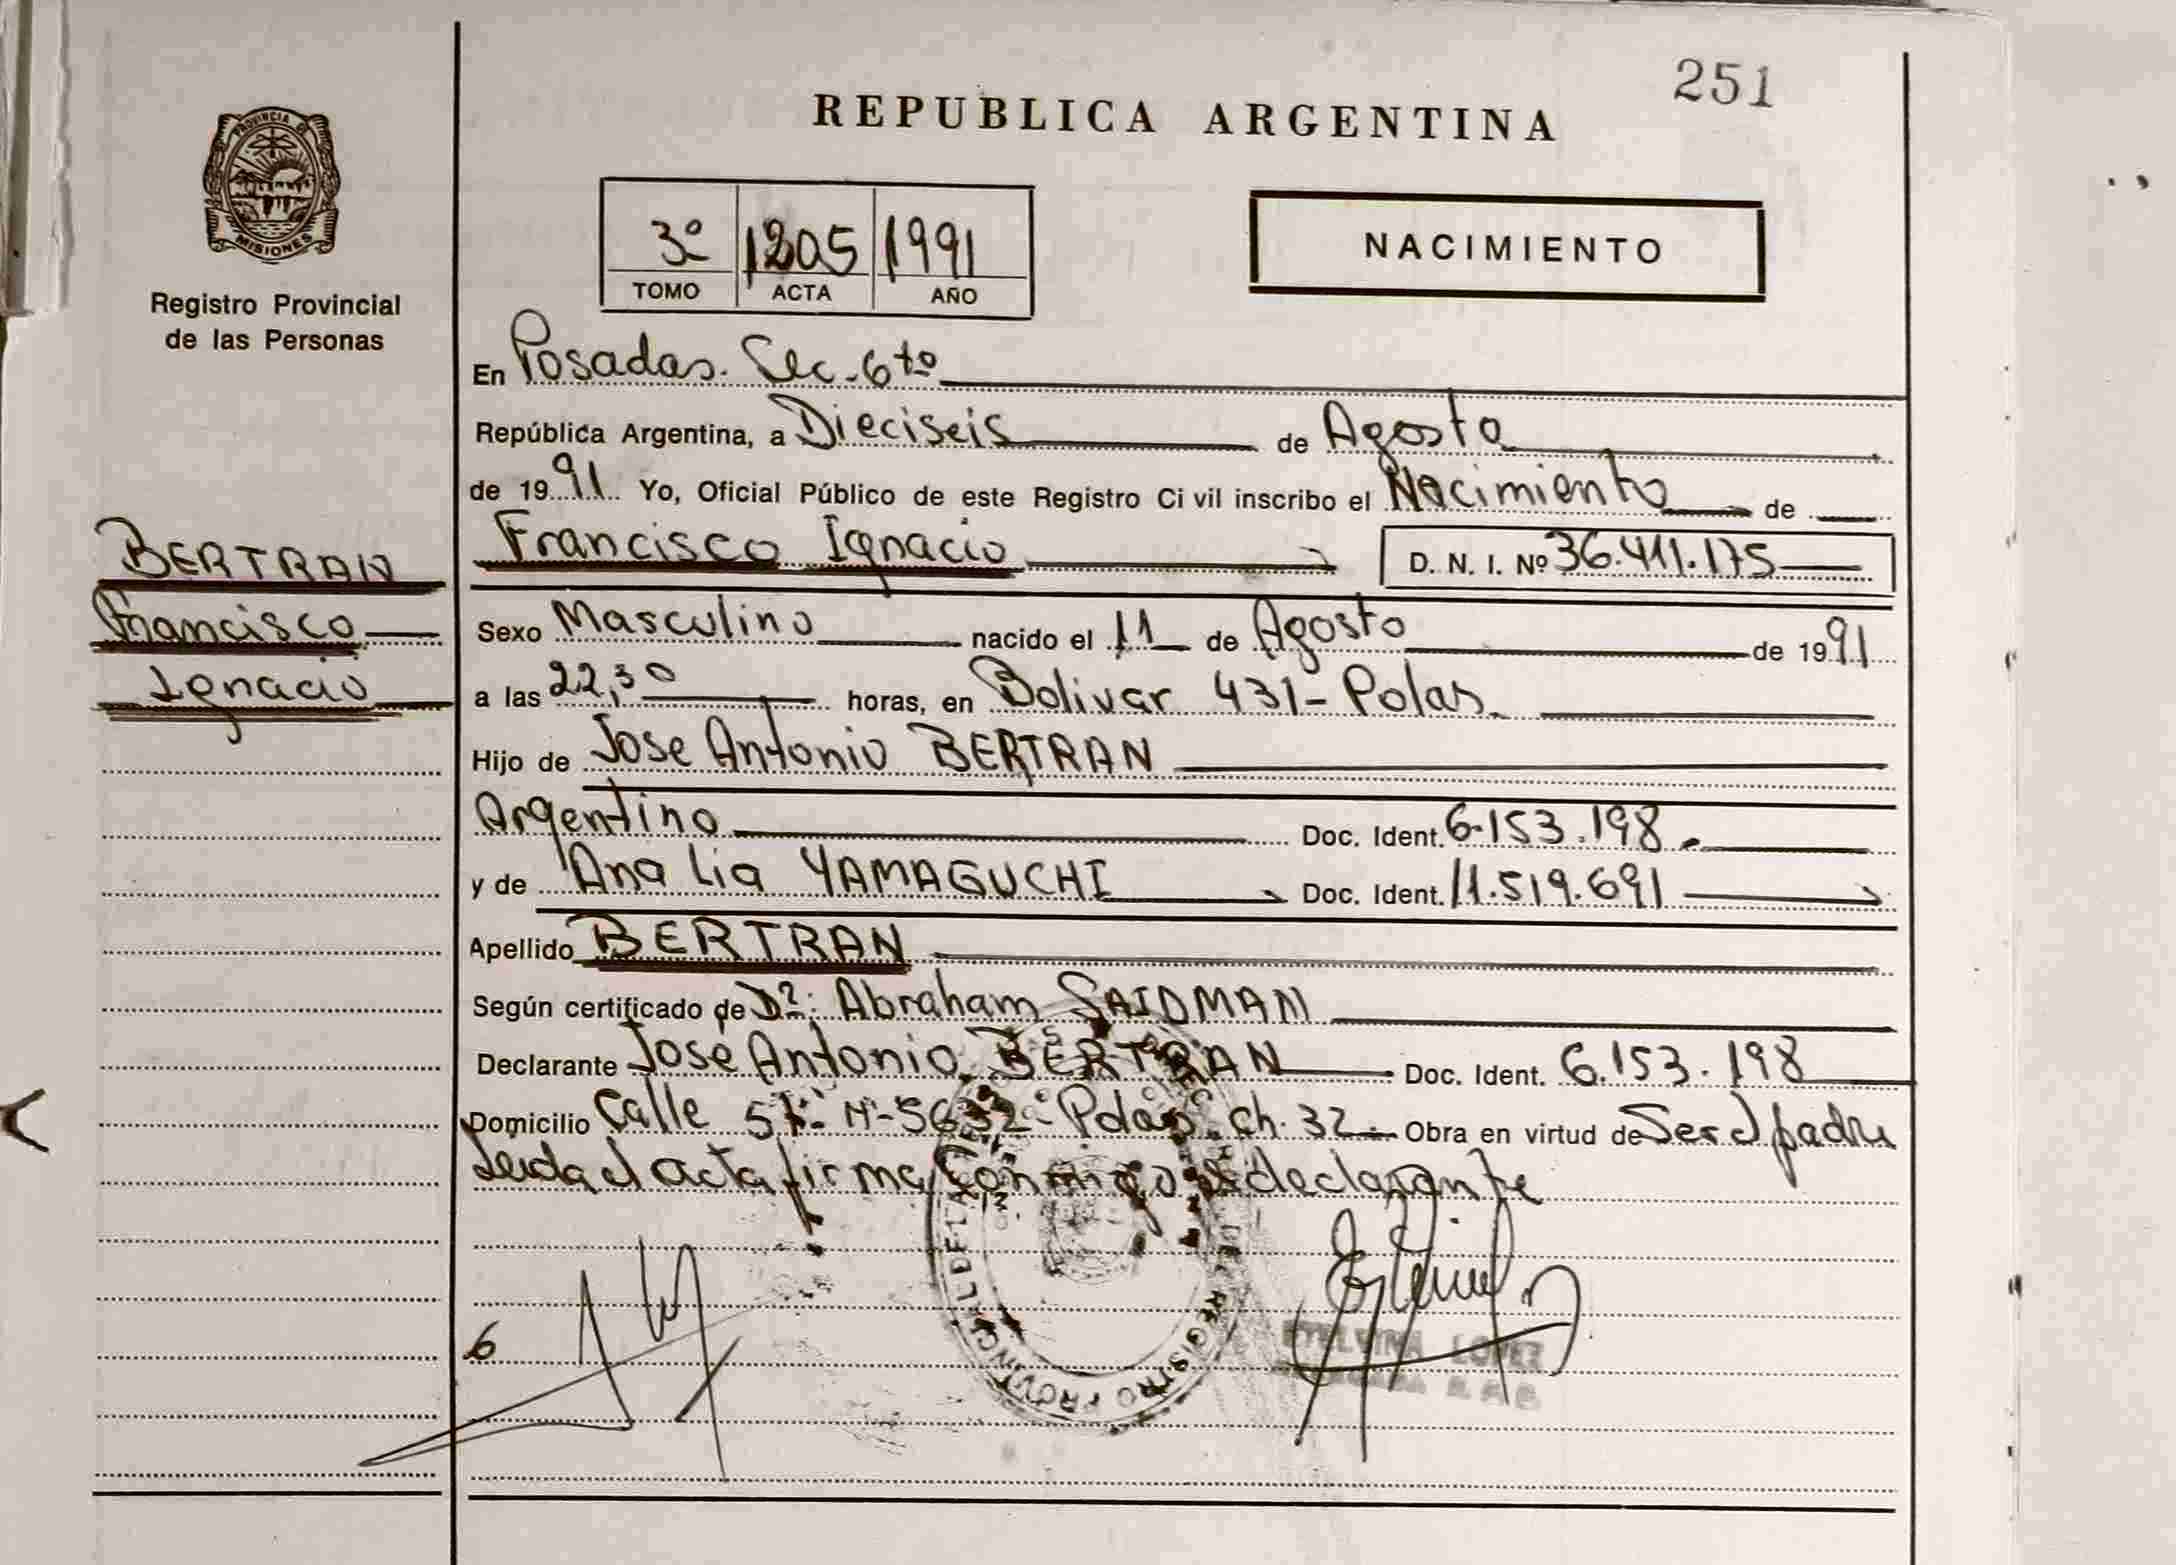 251
REPUBLICA ARGENTINA
PROVINCIA DE
MISIONES
Registro Provincial
de las Personas
3º 1205 1991
TOMO ACTA AÑO
NACIMIENTO
En Posadas. Sec. 6ta
República Argentina, a Dieciseis de Agosto
de 1991 Yo, Oficial Público de este Registro Civil inscribo el Nacimiento de
Francisco Ignacio D. N. I. Nº 36.411.175
BERTRAN
Francisco
Ignacio
Sexo Masculino nacido el 11 de Agosto de 1991
a las 22,30 horas, en Bolivar 431- Pdas.
Hijo de Jose Antonio BERTRAN
Argentino Doc. Ident. 6.153.198.
y de Ana Lia YAMAGUCHI Doc. Ident. 11.519.691
Apellido BERTRAN
Según certificado de Dr: Abraham SAIDMAN
Declarante Jose Antonio BERTRAN Doc. Ident. 6.153.198
Domicilio Calle Nº 5632- Pdas. Ch. 32- Obra en virtud de Ser el padre
Leida el acta firma conmigo el declarante
6
REGISTRO PROVINCIAL DE LAS
ETELVINA LOPEZ